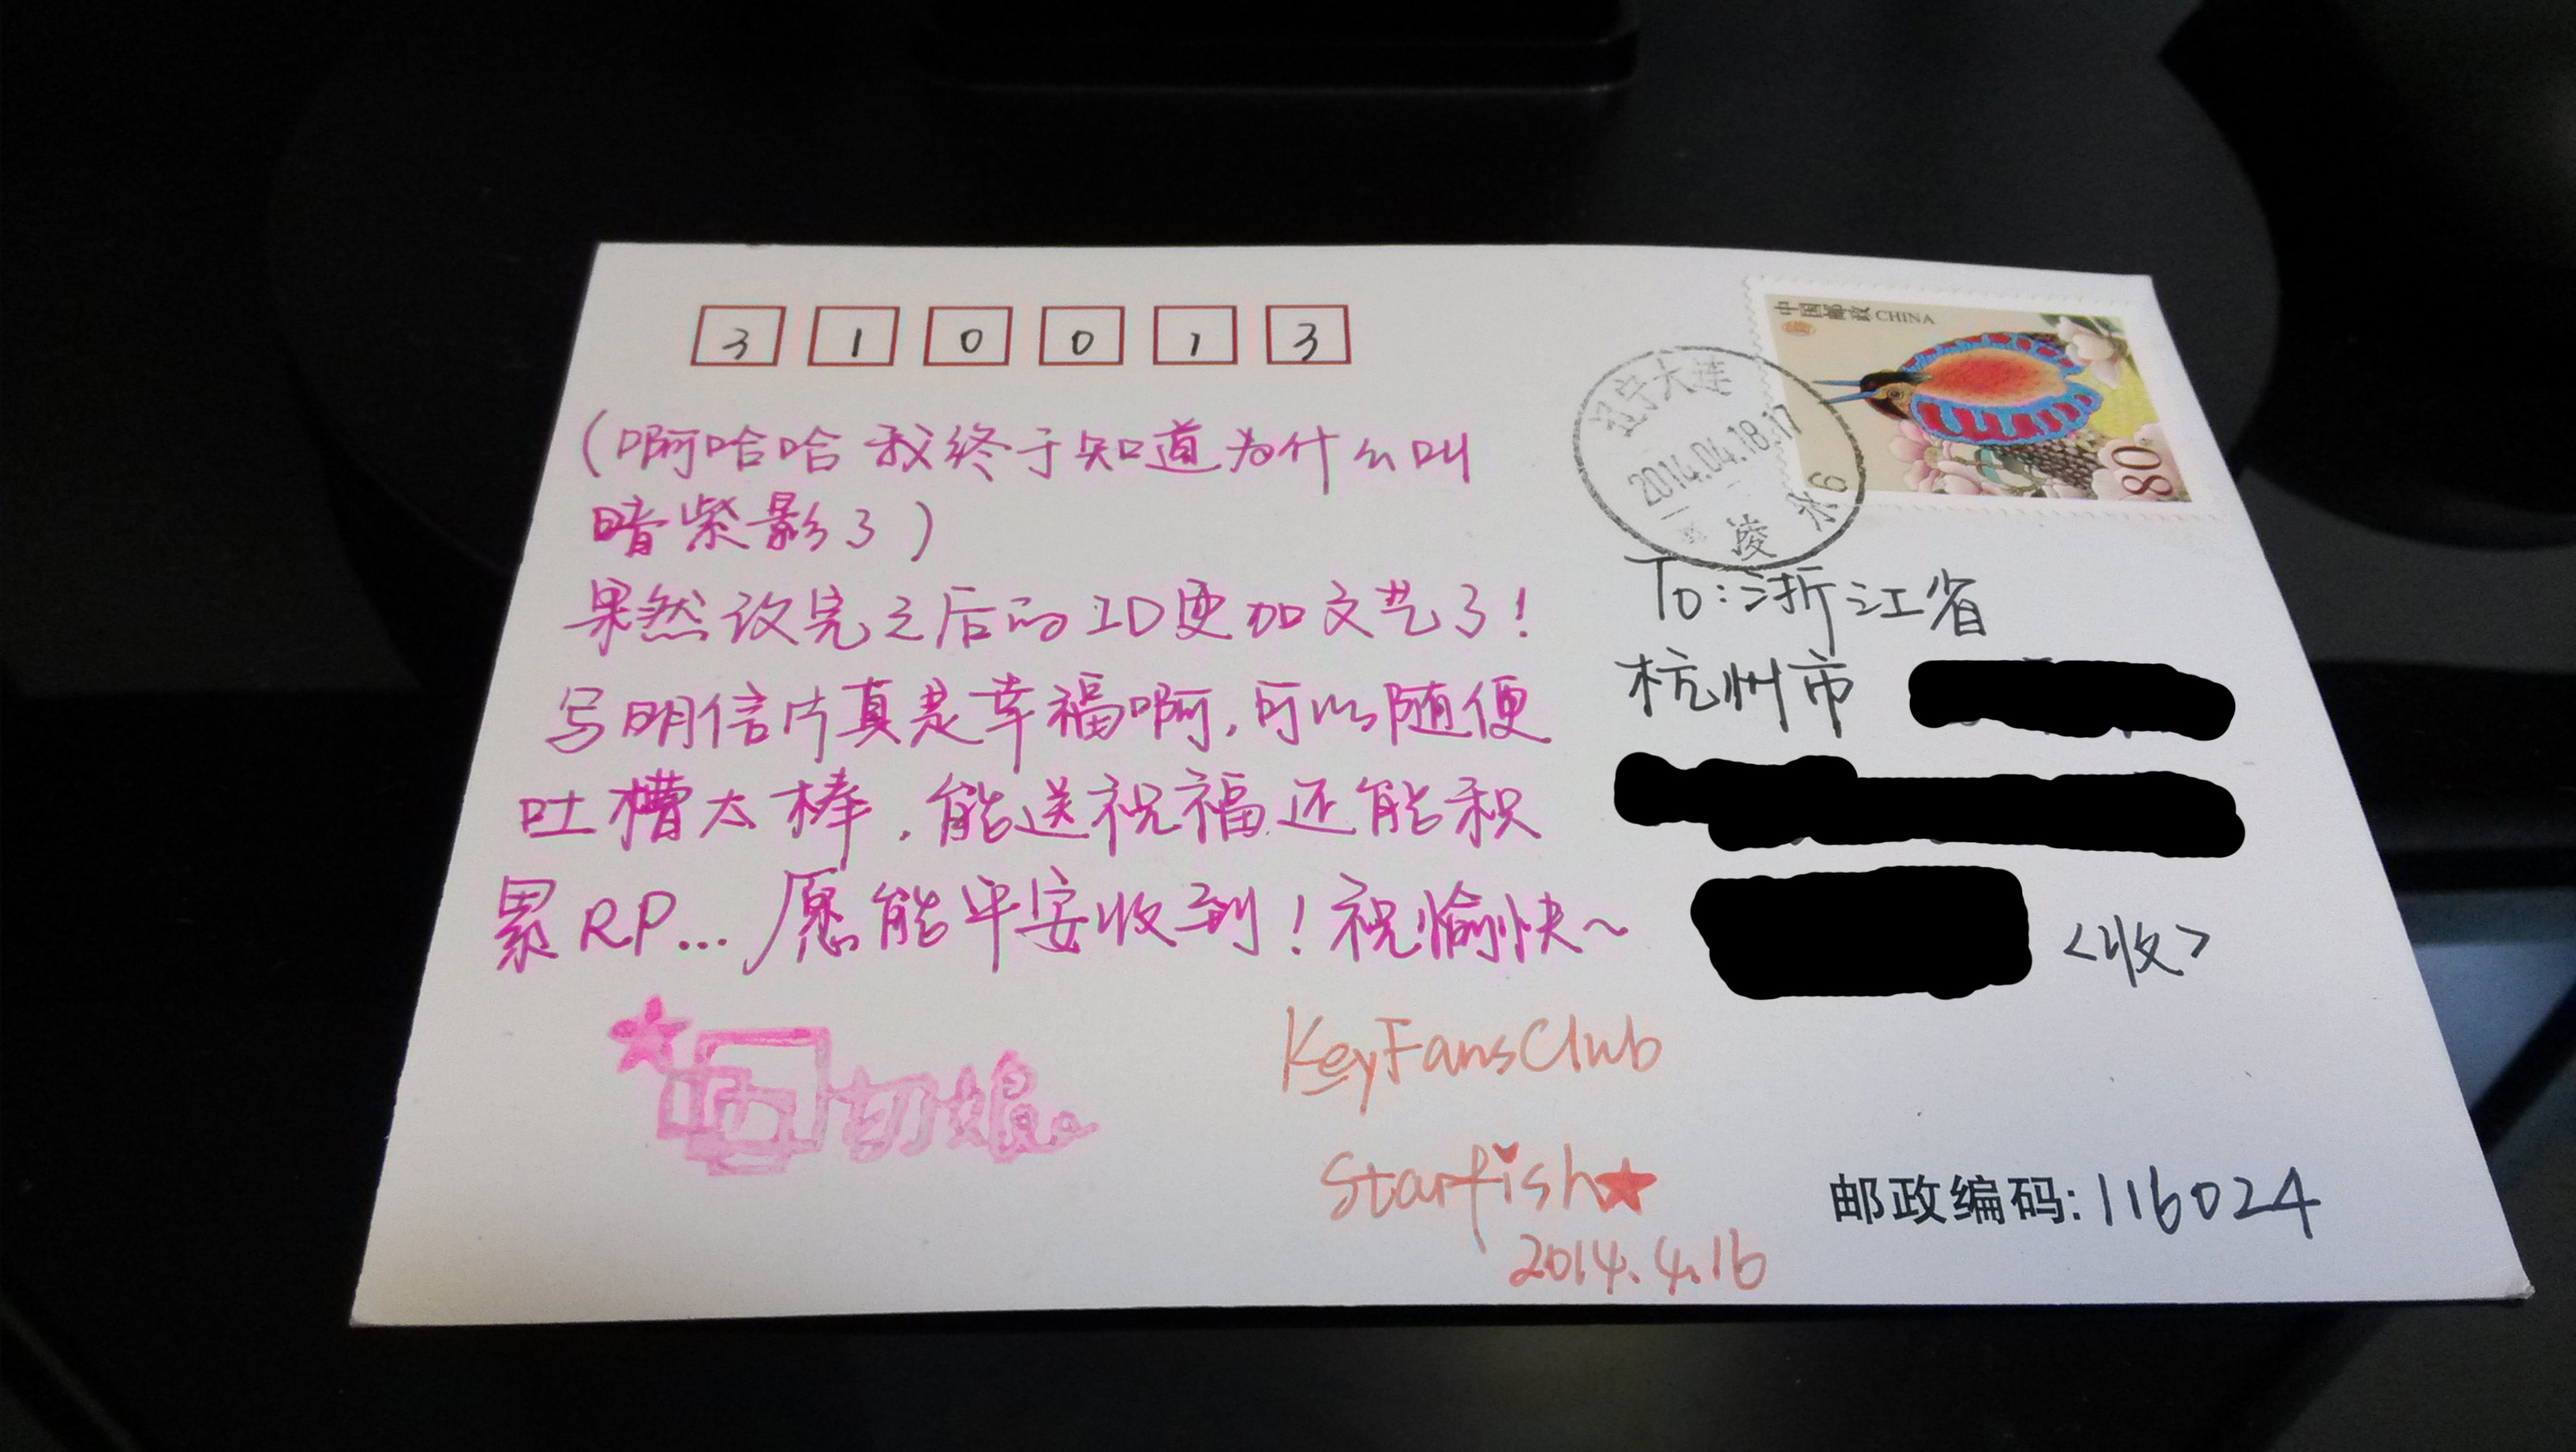 310013
中国邮政 CHINA
80
辽宁大连
2014.04.18.17
凌水 6
(啊哈哈 我终于知道为什么叫
暗紫影了)
果然改完之后的ID更加文艺了!
写明信片真是幸福啊,可以随便
吐槽太棒,能送祝福还能积
累RP...愿能平安收到!祝愉快~
To:浙江省
杭州市
<收>
KeyFansClub
Starfish★
2014.4.16
邮政编码:116024